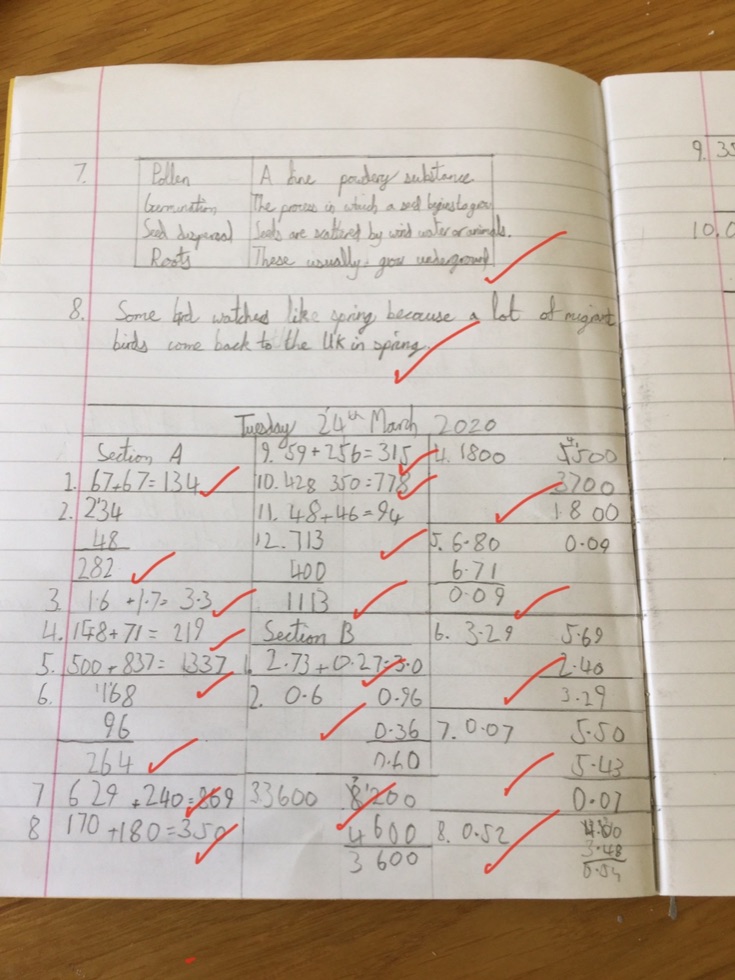 7. Pollen A fine powdery substance
Germination The process in which a seed begins to grow
Seed dispersal Seeds are scattered by wind water or animals.
Roots These usually grow underground
8. Some bird watches like spring because a lot of migrant
birds come back to the UK in spring.
Tuesday 24th March 2020
Section A
1. 67+67=134
2. 234
48
282
3. 1.6 +1.7= 3.3
4. 148+71= 219
5. 500+837= 1337
6. 168
96
264
7 629 +240=869
8 170 +180=350
9. 59+256=315
10. 428 350=778
11. 48+46=94
12. 713
400
1113
Section B
1. 2.73+0.27=3.0
2. 0.6 0.96
0.36
0.60
33600 8200
4600
3600
4. 1800 5500
3700
1800
5. 6.80 0.09
6.71
0.09
6. 3.29 5.69
2.40
3.29
7. 0.07 5.50
5.43
0.07
8. 0.52 4.00
3.48
9. 35
10. 0